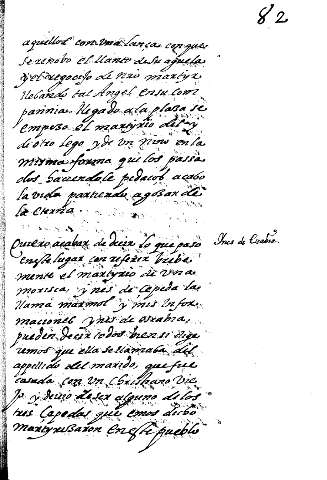 82
aquellos con una lança con que
se renobo el llanto de su aguela
y el regocijo de nro martyr
llebando tal Angel en su com
pannia. llegado a la plaza se
empezo el martyrio del y
de otro lego y de un nino en la
misma forma que los passa
dos haciendole pedacos acabo
la vida partiendo a goçar de
la eterna
Quiero acabar de decir lo que paso
en este lugar con referir breba
mente el martyrio de una
morisca ynes de Cepeda la
llama marmol y mis infor
maciones ynes de Arabia,
pueden decir todos bien si dige
remos que ella se llamaba del
appellido del marido, que fue
casada con un christiano vie
jo y devio de ser alguno de los
tres Cepedas que emos dicho
martyriçaron en este pueblo
Ines de Arabia